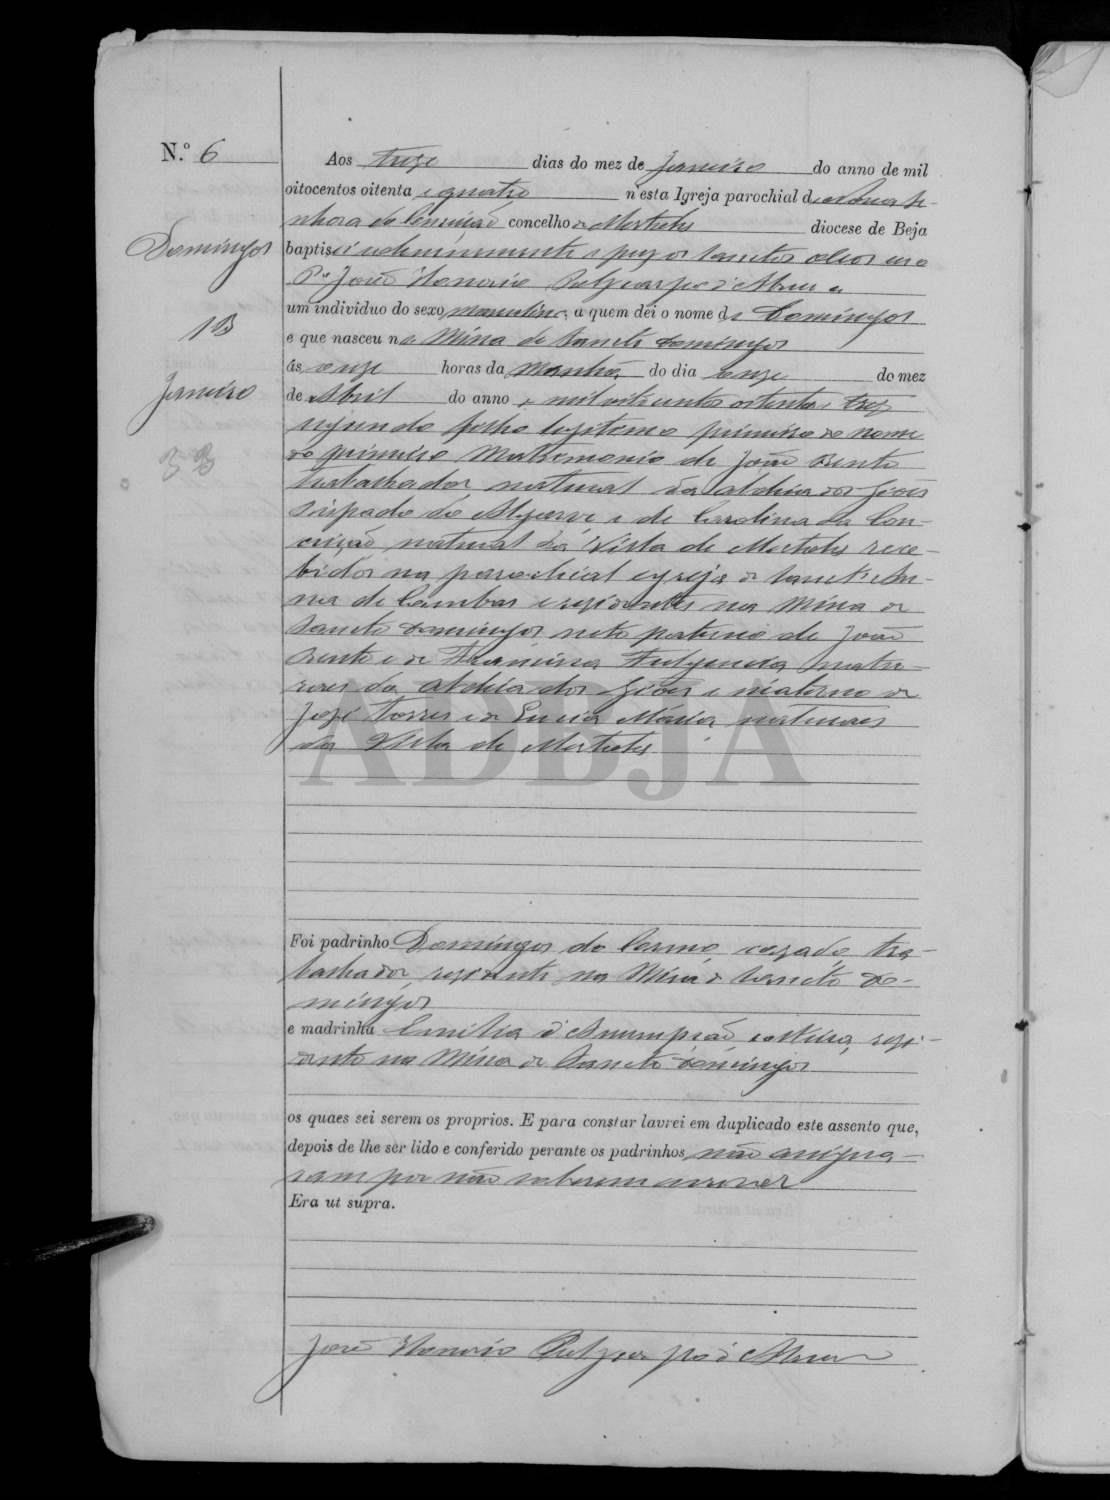 N.º 6
Aos treze dias do mez de Janeiro do anno de mil
oitocentos oitenta e quatro n'esta Igreja parochial de Nossa Se-
nhora da Conceição concelho de Mertola diocese de Beja
Domingos
baptisei indemninente e puz os Sanctos oleos eu o
Pe João Honorio d'Abreu a
um individuo do sexo masculino, a quem dei o nome de Domingos
13
e que nasceu na Mina de Sancto Domingos
ás onze horas da Manhã do dia onze do mez
Janeiro
de Abril do anno de mil oitocentos oitenta e trez
segundo filho legitimo primeiro do nome
33
do primeiro Matrimonio de João Bento
trabalhador natural da aldeia dos Giões
bispado do Algarve e de Carolina da Con-
ceição natural da Villa de Mertola rece-
bidos na parochial egreja de Sanct'An-
na de Cambas e rezidentes na Mina de
Sancto Domingos neto paterno de João
Bento e de Francisca Fulgencia natu-
raes da aldeia dos Giões e materno de
José Torres e de Luzia Maria naturaes
da Villa de Mertola
ADBJA
Foi padrinho Domingos do Carmo, cazado, tra-
balhador, rezidente na Mina de Sancto Do-
mingos
e madrinha Emilia d'Assumpção, solteira, rezi-
dente na Mina de Sancto Domingos
os quaes sei serem os proprios. E para constar lavrei em duplicado este assento que,
depois de lhe ser lido e conferido perante os padrinhos, não assigna-
ram por não saberem escrever
Era ut supra.
João Honorio d'Abreu